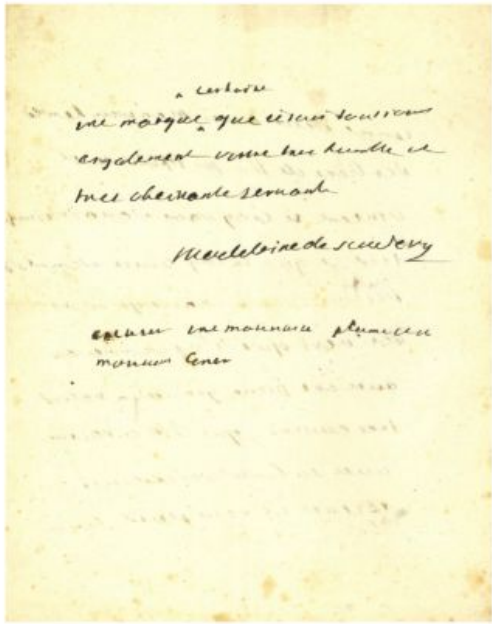 ^ certaine
une marque ^ que je suis tousiours
esgalement vostre tres humble et
tres obeissante servante
Madeleine de scudery
excusez une mauvaise plume et
mauvais